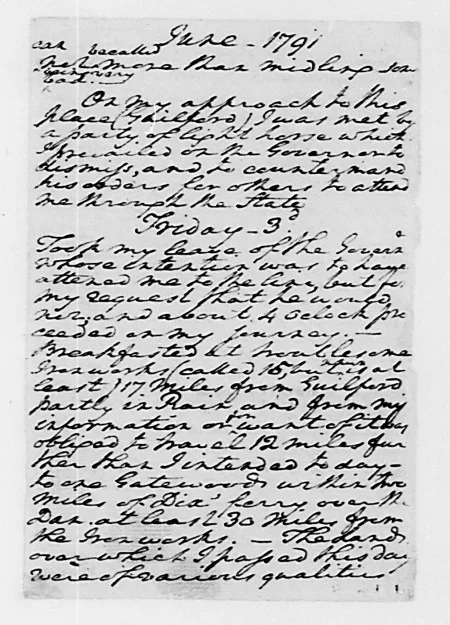 June - 1791
can be called
not more than midling some
being very
bad. -
On my approach to this
place (Guilford) I was met by
a party of light horse which
I prevailed on the Governor to
dismiss, and to countermand
his orders for others to attend
me through the State
Friday - 3d.
Took my leave of the Govern r
whose intention was to have
attened me to the line, but for
my request that he would
not; and about 4 oclock pro
ceeded on my journey. -
Breakfasted at troublesome
Iron works (called 15, but is at
least) 17 Miles from Guilford
partly in Rain and from my
information or for want of it was
obliged to travel 12 miles fur
ther than I intended to day -
to one Gatewoods within two
Miles of Dix' ferry over the
Dan. at least 30 Miles from
the Iron works. - The Lands
over which I passed this day
were of various qualities